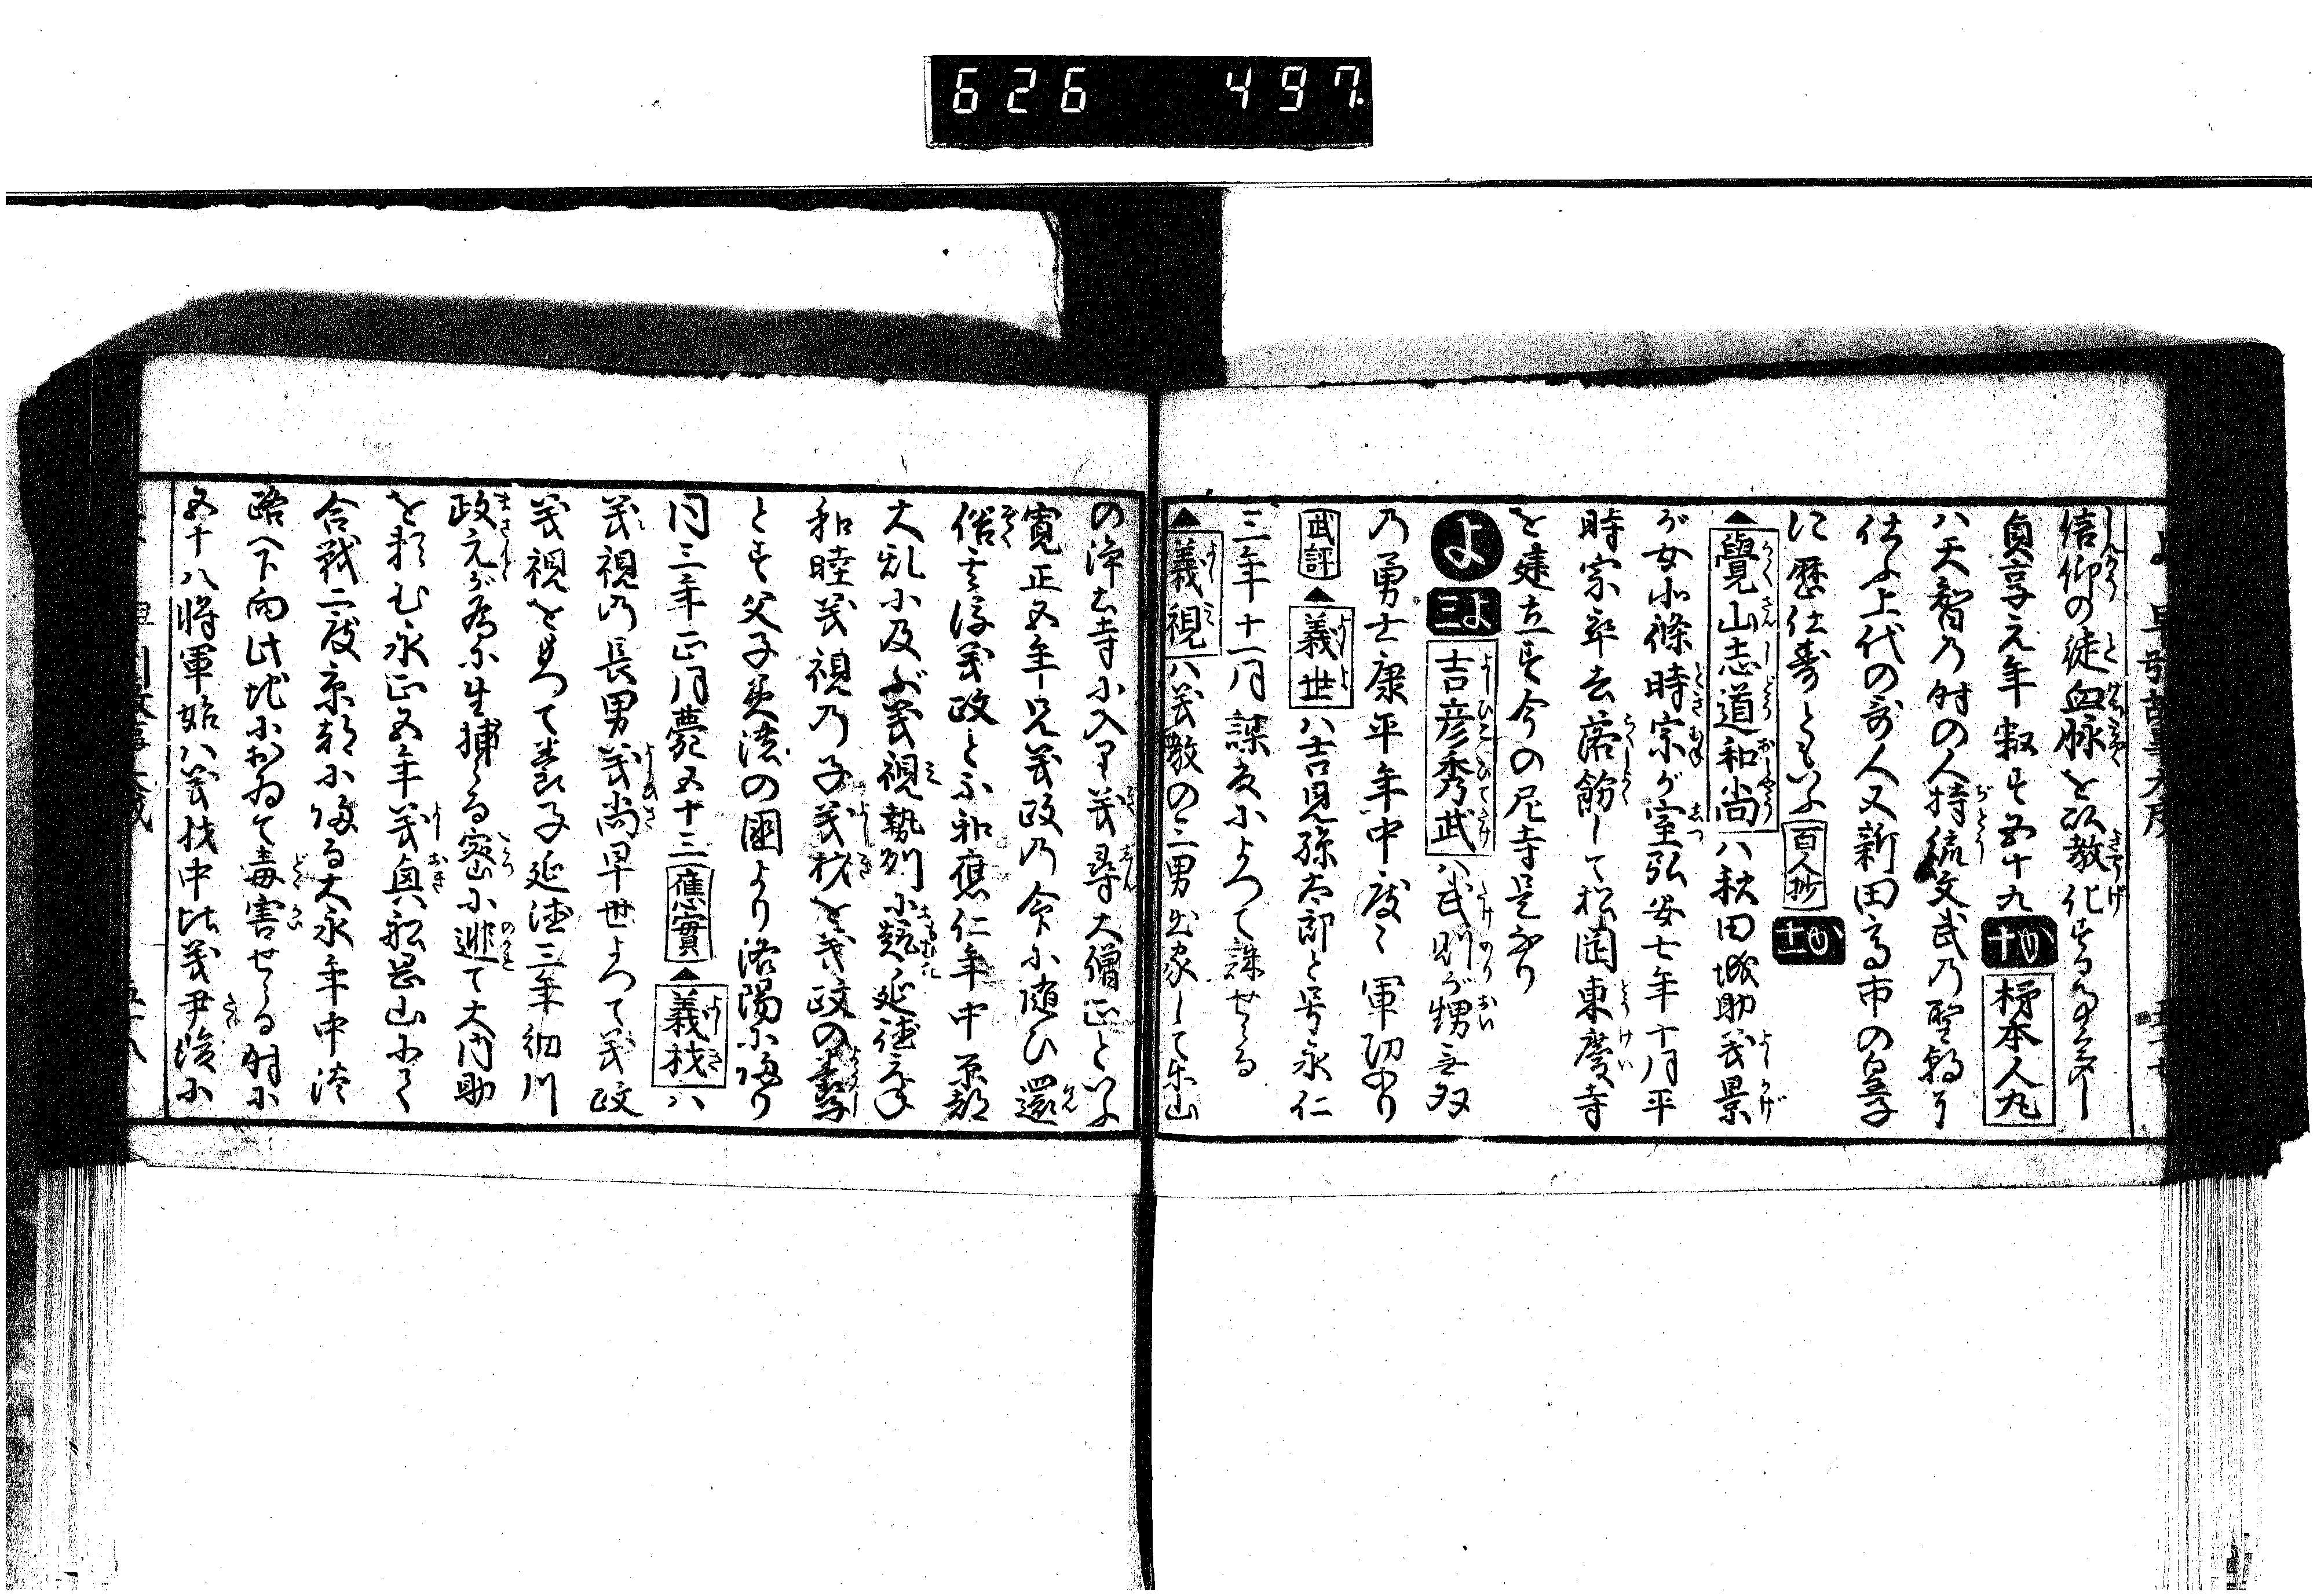 626 497
信仰の徒血脉を以教化する事多し
貞享元年寂す五十九 十か 柿本人丸
ハ天智の時の人持統文武の聖朝に
仕ふ上代の哥人又新田高市の皇子
に歴仕奇ともいふ 百人抄 十一か
▲覺山志道和尚ハ秋田城助義景
が女北條時宗が室弘安七年十月平
時宗卒去落餝して松岡東慶寺
を建立す今の尼寺是なり
よ 三よ 吉彦秀武ハ武則が甥無双
の勇士康平年中度々軍功あり
武評 ▲義世ハ吉見孫太郎と号永仁
三年十一月謀反によつて誅せらる
▲義視ハ義教の三男出家して東山
の浄土寺に入て義尋大僧正といふ
寛正五年兄義政の命に随ひ還
俗す後義政と不和應仁年中京都
大乱に及ぶ義視勢州に趣延徳元年
和睦義視の子義材を義政の養子
とす父子美濃の國より洛陽に帰り
同三年正月薨五十三 應實 ▲義材ハ
義視の長男義尚早世よつて義政
義視を以つて養子延徳三年細川
政元が為に生捕らる密に遁て大内助
を頼む永正五年義興船岡山にて
合戦二度京都に帰る大永年中淡
路へ下向此地におゐて毒害せらる時に
五十八将軍始ハ義材中比義尹後に